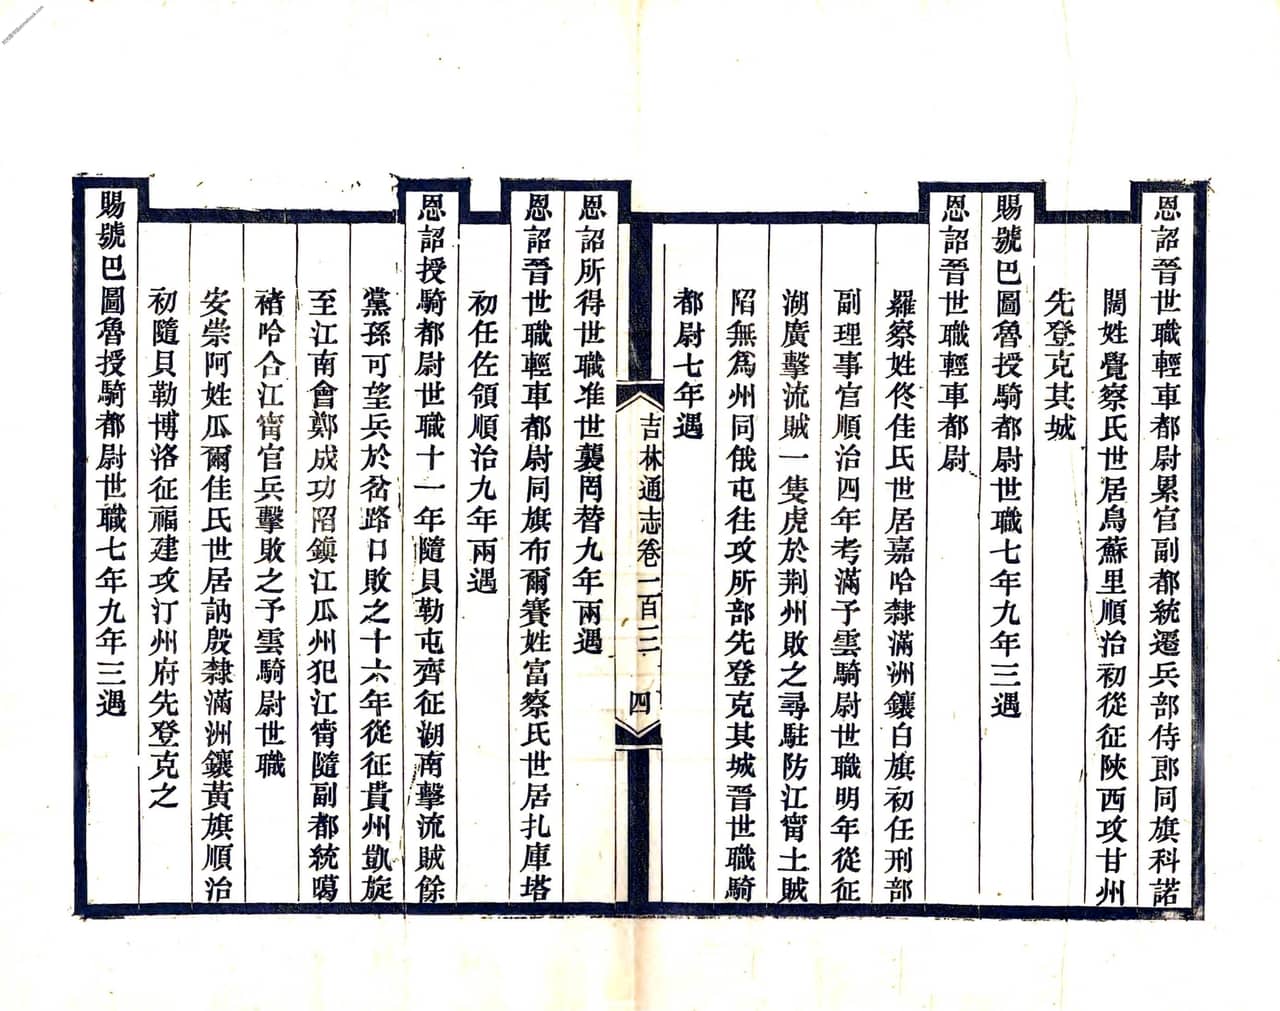 恩詔晉世職輕車都尉累官副都統遷兵部侍郎同旗科諾
闊姓覺察氏世居烏蘇里順治初從征陝西攻甘州
先登克其城
賜號巴圖魯授騎都尉世職七年九年三遇
恩詔晉世職輕車都尉
羅察姓佟佳氏世居嘉哈隸滿洲鑲白旗初任刑部
副理事官順治四年考滿予雲騎尉世職明年從征
湖廣擊流賊一隻虎於荆州敗之尋駐防江甯土賊
陷無爲州同俄屯往攻所部先登克其城晉世職騎
都尉七年遇
吉林通志卷一百二 四
恩詔所得世職准世襲罔替九年兩遇
恩詔晉世職輕車都尉同旗布爾賽姓富察氏世居扎庫塔
初任佐領順治九年兩遇
恩詔授騎都尉世職十一年隨貝勒屯齊征湖南擊流賊餘
黨孫可望兵於岔路口敗之十六年從征貴州凱旋
至江南會鄭成功陷鎮江瓜州犯江甯隨副都統噶
褚哈合江甯官兵擊敗之予雲騎尉世職
安崇阿姓瓜爾佳氏世居訥殷隸滿洲鑲黃旗順治
初隨貝勒博洛征福建攻汀州府先登克之
賜號巴圖魯授騎都尉世職七年九年三遇